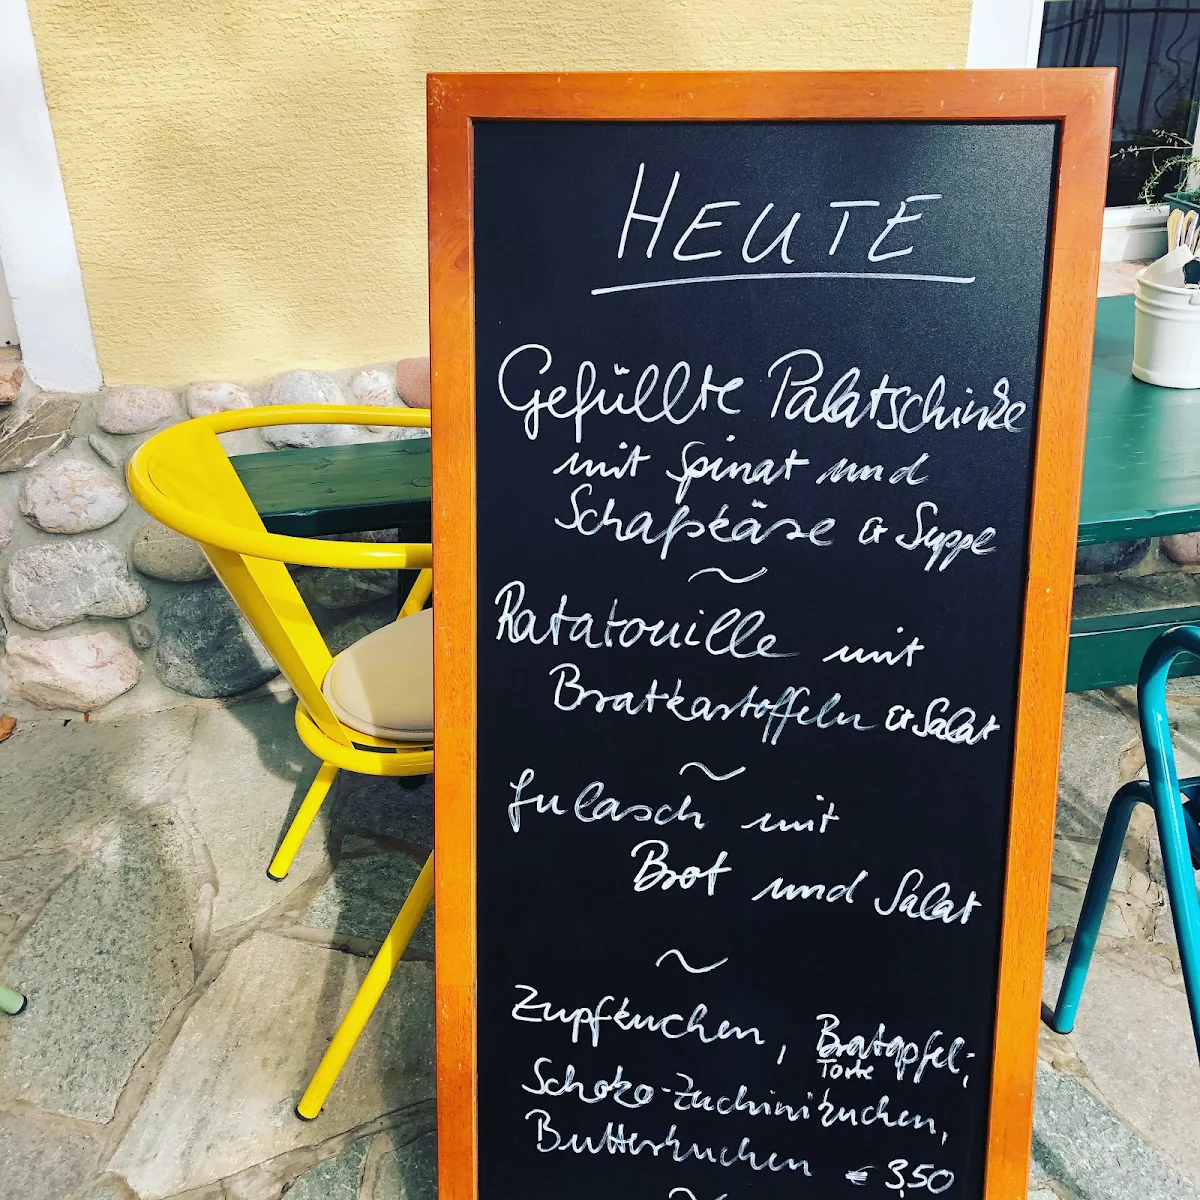 HEUTE
Gefüllte Palatschinke
mit Spinat und
Schafskäse & Suppe
~
Ratatouille mit
Bratkartoffeln & Salat
~
Gulasch mit
Brot und Salat
~
Zupfkuchen, Bratapfel-
Torte
Schoko-Zuchinikuchen,
Butterkuchen € 3,50
~